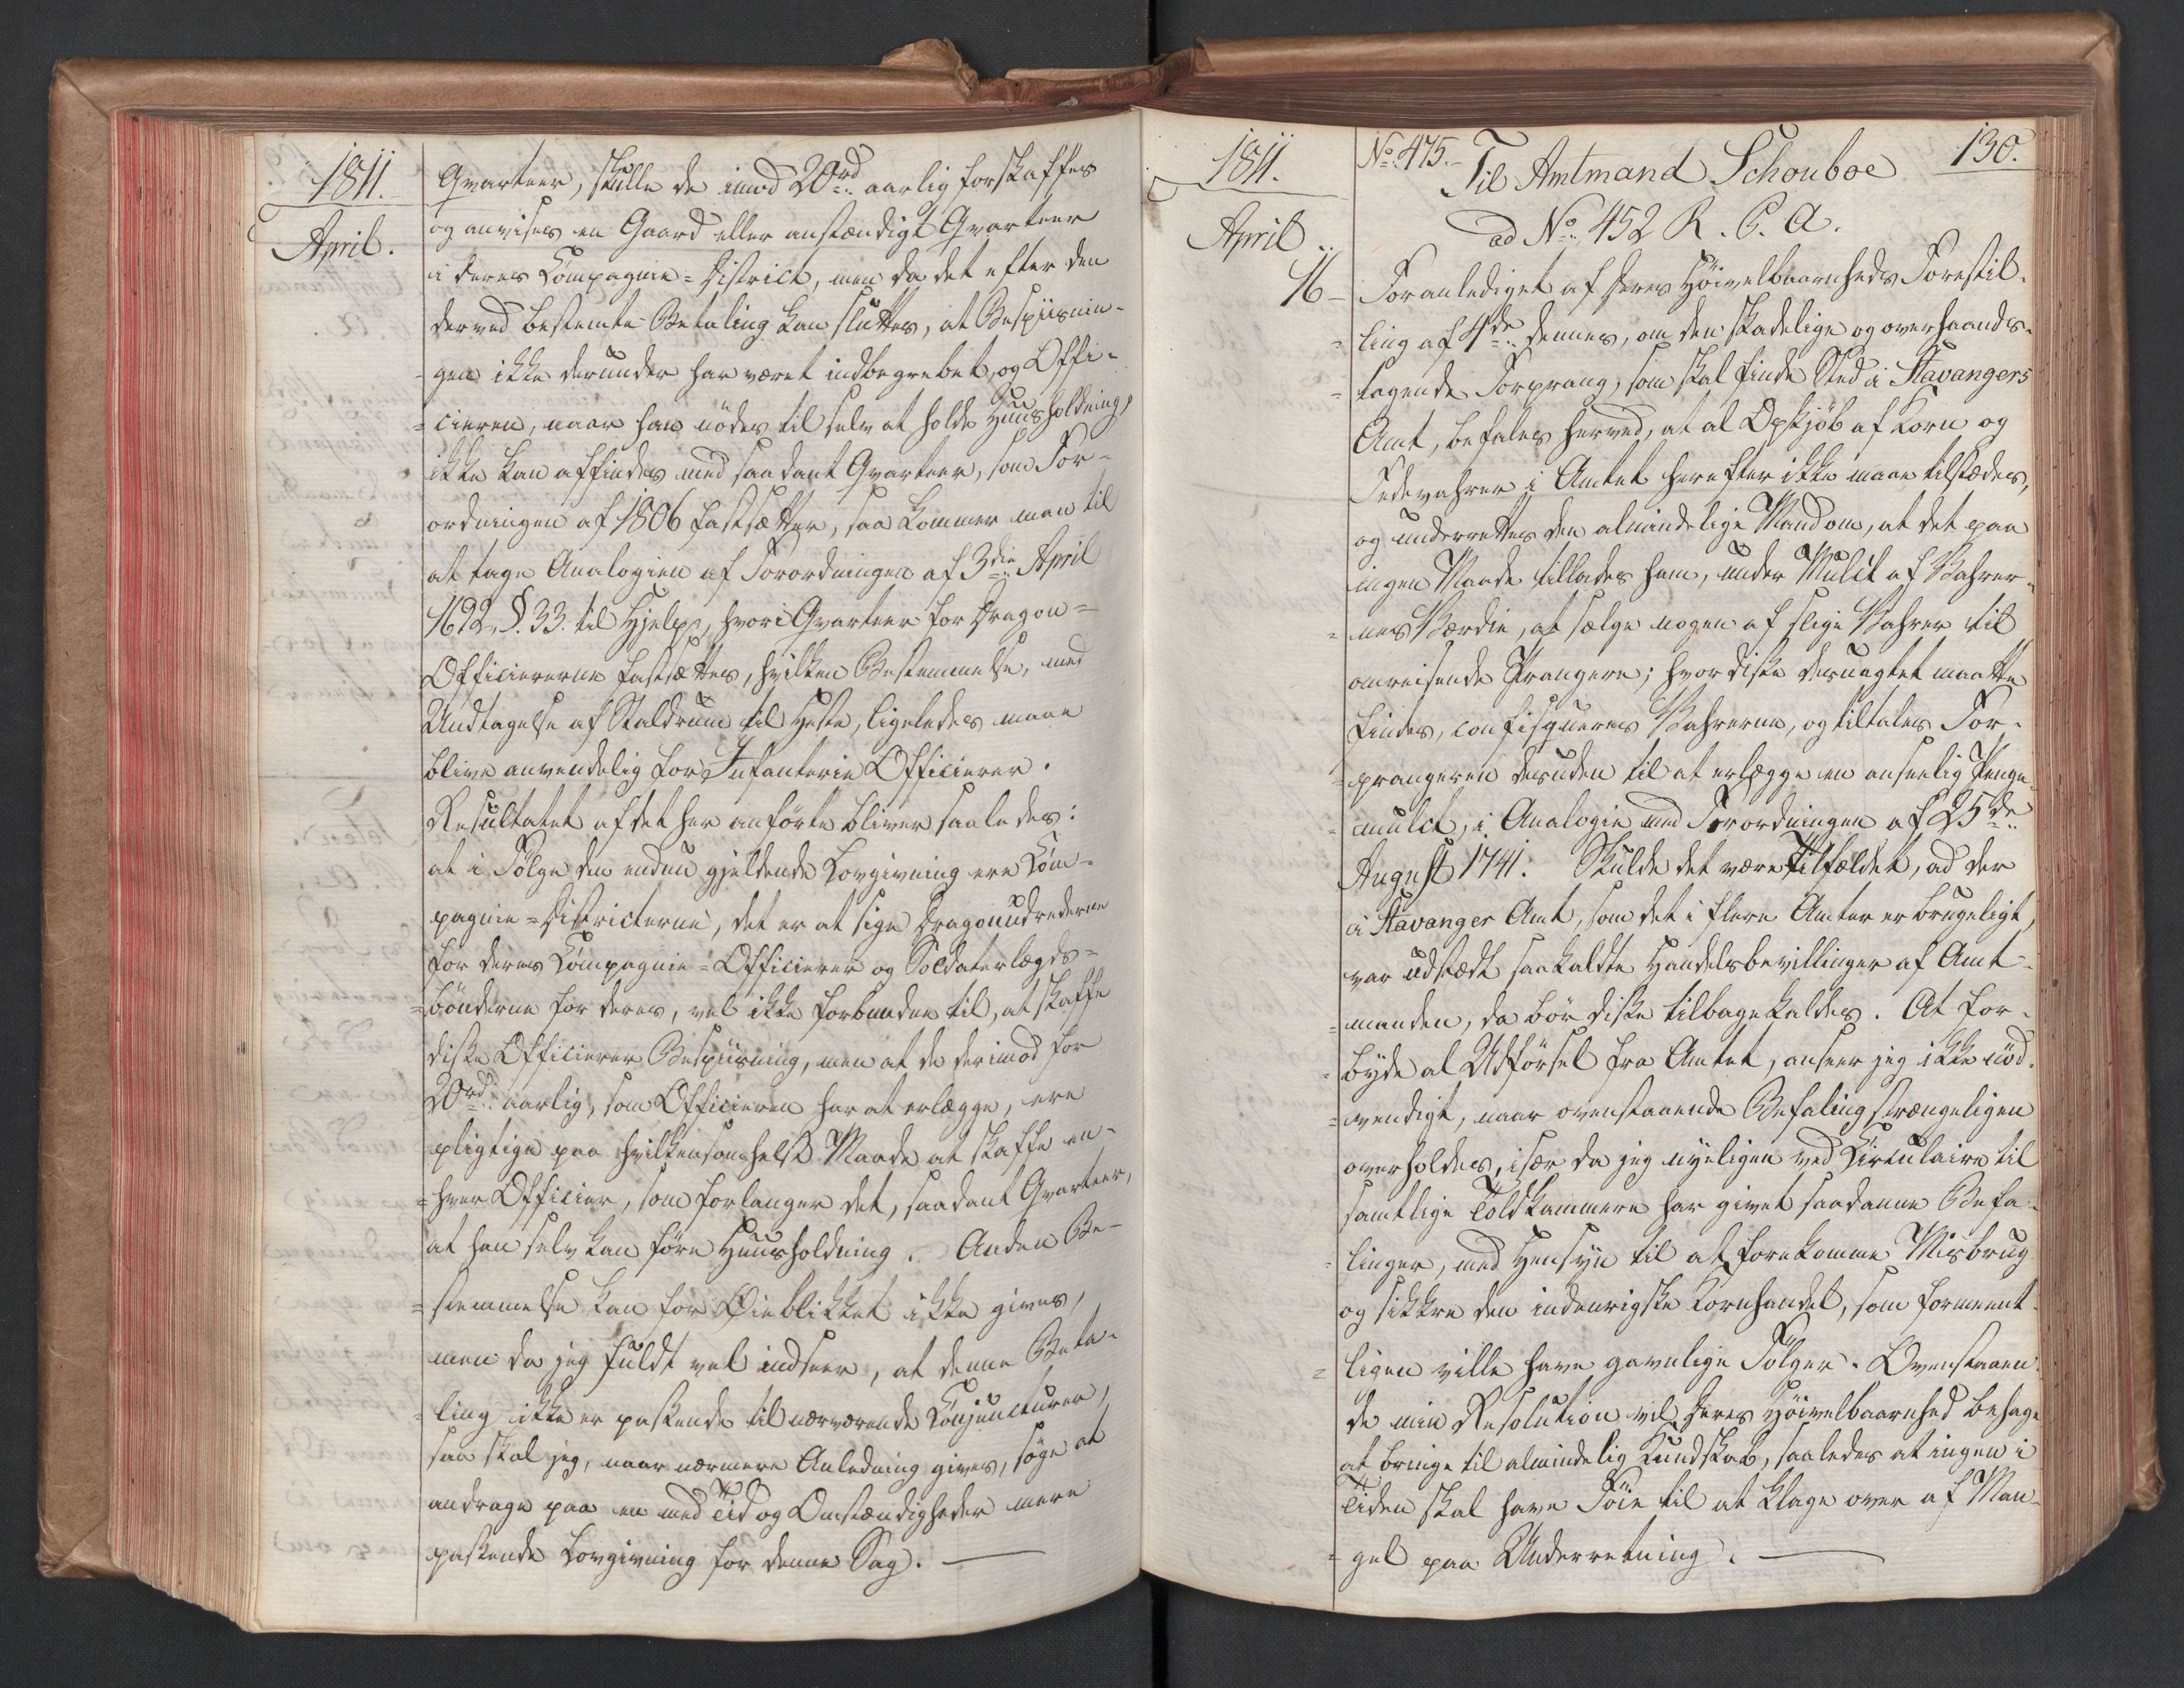 1811.
April.
Qvarteer, skulle de imod 20rd. aarlig forskaffes
og anvises en Gaard eller anstændigt Qvarteer
i deres Compagnie=District, men da det efter den
derved bestemte Betaling kan sluttes, at Bespiisnin-
gen ikke derunder har været indbegrebet, og Offi-
=cieren, naar han nødes til selv at holde Huusholdning,
ikke kan affindes med saadant Qvarteer, som For-
ordningen af 1806 fastsætter, saa kommer man til
at tage Analogien af Forordningen af 3die April
1692, §. 33. til Hjelp, hvori Qvarteer for Dragon=
Officiererne fastsættes, hvilken Bestemmelse, med
Undtagelse af Staldrum til Heste, ligeledes maae
blive anvendelig for Infanterie Officierer.
Resultatet af det her anførte bliver saaledes:
at i Følge den endnu gjeldende Lovgivning ere Com-
pagnie=Districterne, det er at sige Dragonudrederne
for deres Compagnie=Officierer og Soldaterlægds=
=bønderne for deres, vel ikke forbunden til, at skaffe
diske Officierer Bespiisning, men at de derimod for
20rd. aarlig, som Officieren har at erlægge, ere
pligtige paa hvilkensomhelst Maade at skaffe en-
=hver Officier, som forlanger det, saadant Qvarteer,
at han selv kan føre Huusholdning. Anden Be-
=stemmelse kan for Øieblikket ikke gives,
men da jeg fuldt vel indseer, at denne Beta-
=ling ikke er passende til nærværende Conjuncturer,
saa skal jeg, naar nærmere Anledning gives, søge at
andrage paa en med Tid og Omstændigheder mere
passende Lovgivning for denne Sag.
1811.
April
16
No. 475.
130.
Til Amtmand Schouboe
ad No. 452 R. C. A.
Foranlediget af Deres Høivelbaarenheds Forestil-
=ling af 4de dennes, om den skadelige og overhaands-
=tagende Forprang, som skal finde Sted i Stavangers
Amt, befales herved, at al Opkjøb af Korn og
Fedevahrer i Amtet herefter ikke maae tilstædes,
og underrettes den almindelige Mand om, at det paa
ingen Maade tillades ham, under Mulct af Vahrer-
=nes Værdie, at sælge nogen af slige Vahrer til
omreisende Prangere; hvor diske desuagtet maatte
findes, confisqueres Vahrerne, og tiltales For-
=prangeren desuden til at erlægge en anseelig Penge
=mulct, i Analogie med Forordningen af 25de
August 1741. Skulde det være Tilfældet, ad der
i Stavanger Amt, som det i flere Amter er brugeligt,
var udstædt saakaldte Handelsbevillinger af Amt-
=manden, da bør diske tilbagekaldes. At for-
=byde al Udførsel fra Amtet, anseer jeg ikke nød-
=vendigt, naar ovenstaaende Befaling strængeligen
overholdes, især da jeg nyeligen ved Circulaire til
samtlige Toldkammere har givet saadanne Befa-
=linger, med Hensyn til at forekomme Misbrug
og sikkre den indenrigske Kornhandel, som forment-
=ligen ville have gavnlige Følger. Ovenstaaen
de min Resolution vil Deres Høivelbaarenhed behage
at bringe til almindelig Kundskab, saaledes at ingen i
Tiden skal have Føie til at klage over af Man-
=gel paa Underretning.